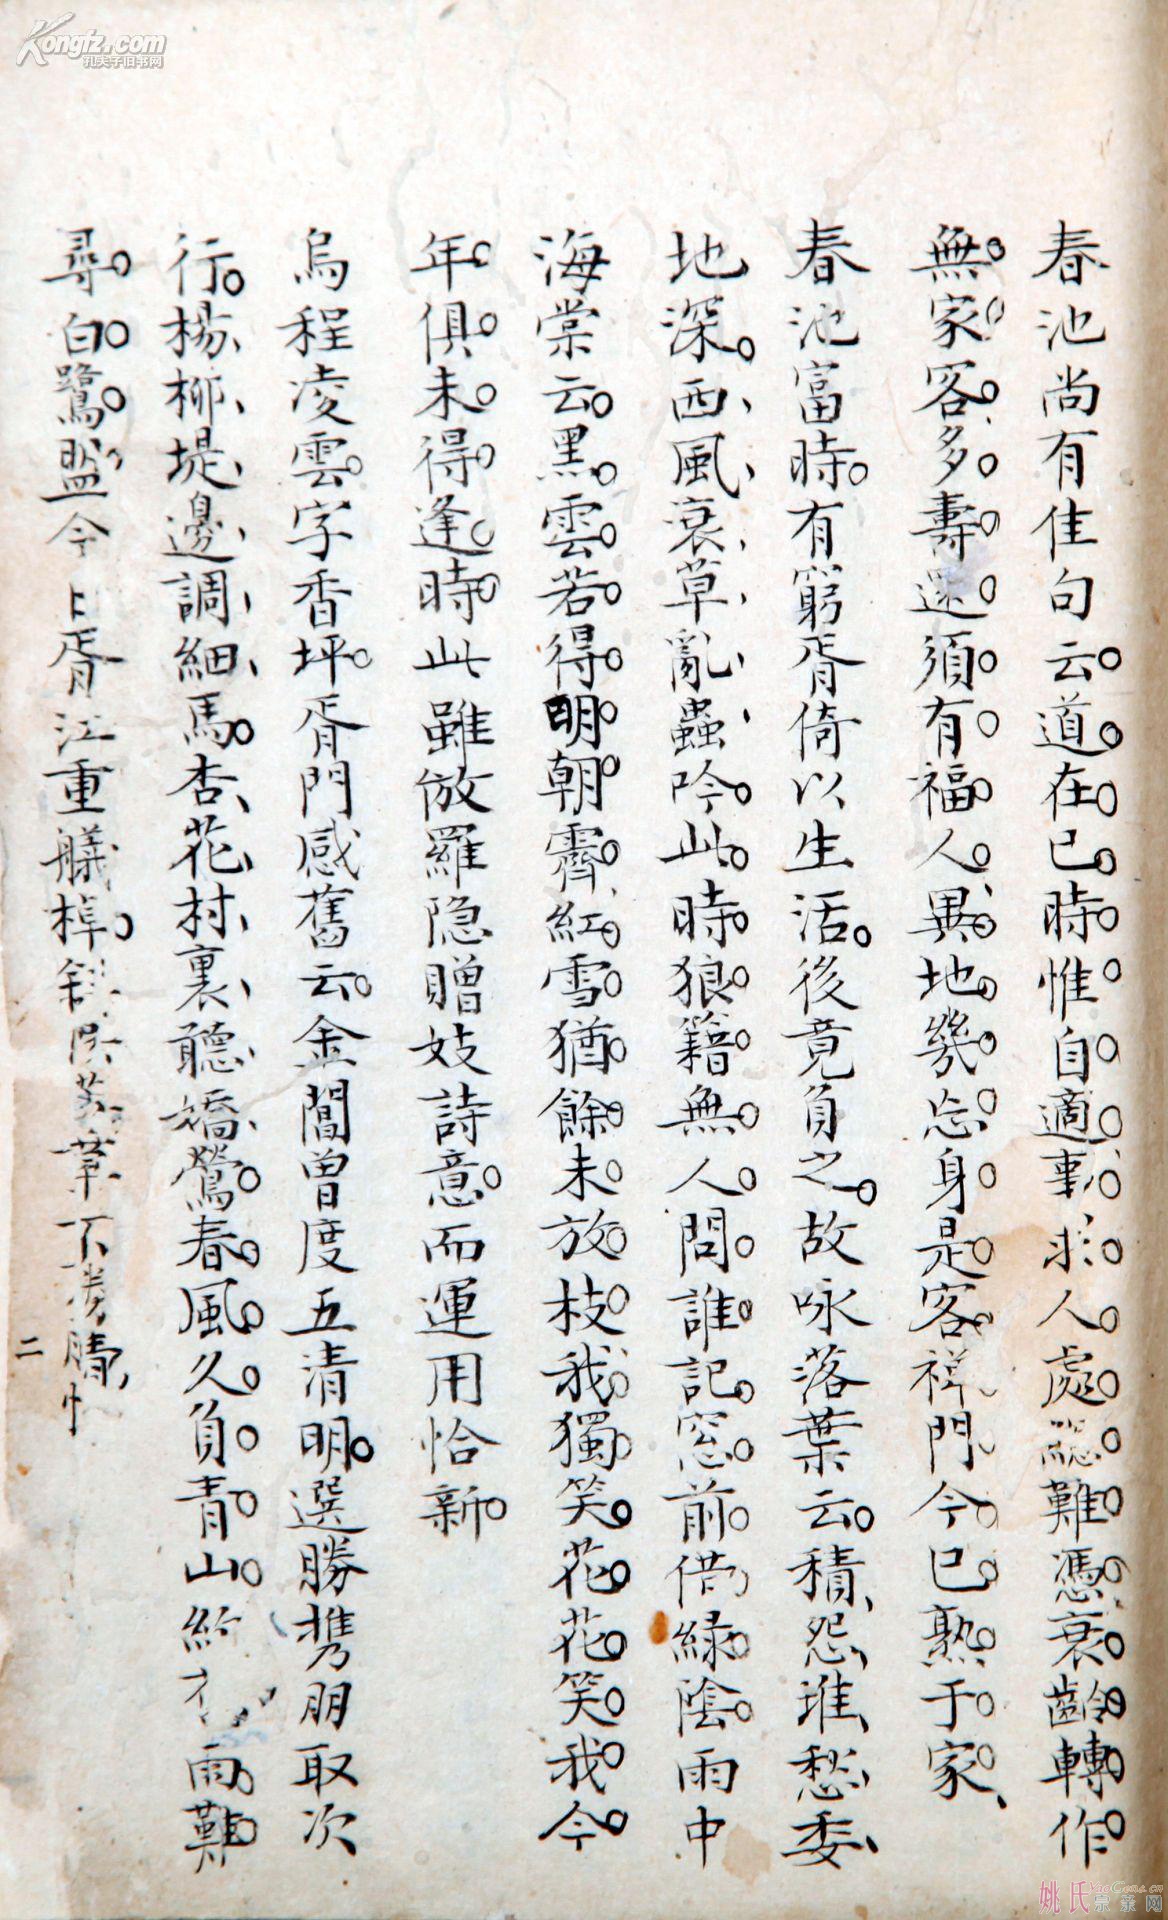 春池尚有佳句云道在已時惟自適事求人處聽難憑衰齡轉作
無家客多壽還須有福人異地幾忘身是客祥門今已熟于家
春池富時有窮胥倚以生活後竟負之故咏落葉云積怨堆愁委
地深西風衰草亂蟲吟此時狼籍無人問誰記窓前借緑陰雨中
海棠云黑雲若得明朝霽紅雪猶餘未放枝我獨笑花花笑我今
年俱未得逢時此雖倣羅隐贈妓詩意而運用恰新
烏程凌雲字香坪胥門感舊云金閶曾度五清明選勝携朋取次
行楊柳堤邊調細馬杏花村裏聽嬌鶯春風久負青山約雨難
尋白鷺盟今日胥江重艤棹斜陽葉不勝情
二
Kongfz.com
孔夫子旧书网
姚氏宗亲网